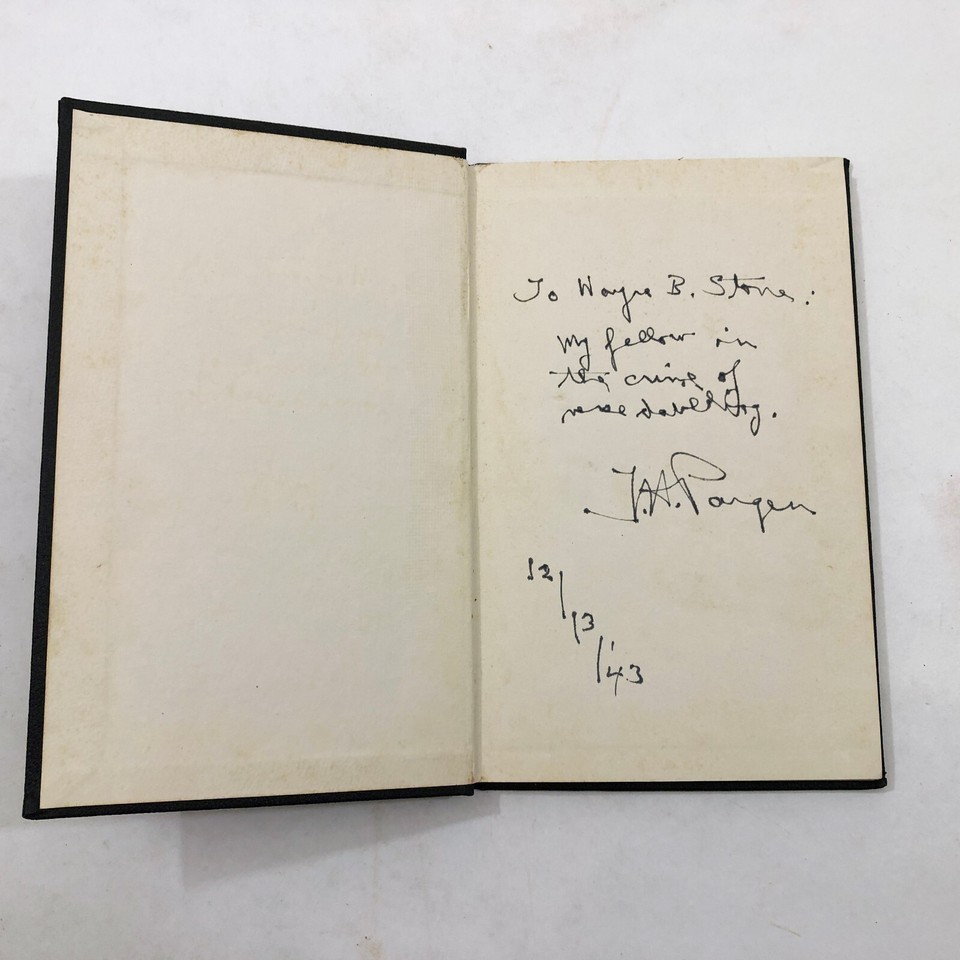 To Wayne B. Stone:
My fellow in
the crime of
verse dabbling.
12/13/'43